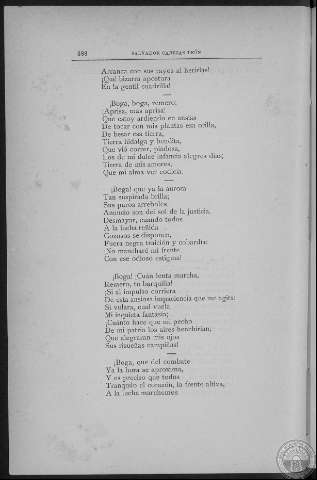 288
SALVADOR CARRERA LEÓN
Arranca con sus rayos al herirlas!
¡Qué bizarra apostura
En la gentil cuadrilla!
¡Boga, boga, remero,
¡Aprisa, más aprisa!
Que estoy ardiendo en ansias
De tocar con mis plantas esa orilla,
De besar esa tierra,
Tierra hidalga y bendita,
Que vió correr, piadosa,
Los de mi dulce infancia alegres días;
Tierra de mis amores,
Que mi alma ver codicia.
¡Boga! que ya la aurora
Tan suspirada brilla;
Sus puros arreboles
Anuncio son del sol de la justicia.
Desmayar, cuando todos
A la lucha reñida
Gozosos se disponen,
Fuera negra traición y cobardía:
No manchará mi frente
Con ese odioso estigma!
¡Boga! ¡Cuán lenta marcha,
Remero, tu barquilla!
¡Si al impulso corriera
De esta ansiosa impaciencia que me agita!
Si volara, cual vuela
Mi inquieta fantasía;
¡Cuánto hace que mi pecho
De mi patria los aires henchirían;
Que alegraran mis ojos
Sus risueñas campiñas!
¡Boga, que del combate
Ya la hora se aproxima,
Y es preciso que todos
Tranquilo el corazón, la frente altiva,
A la lucha marchemos